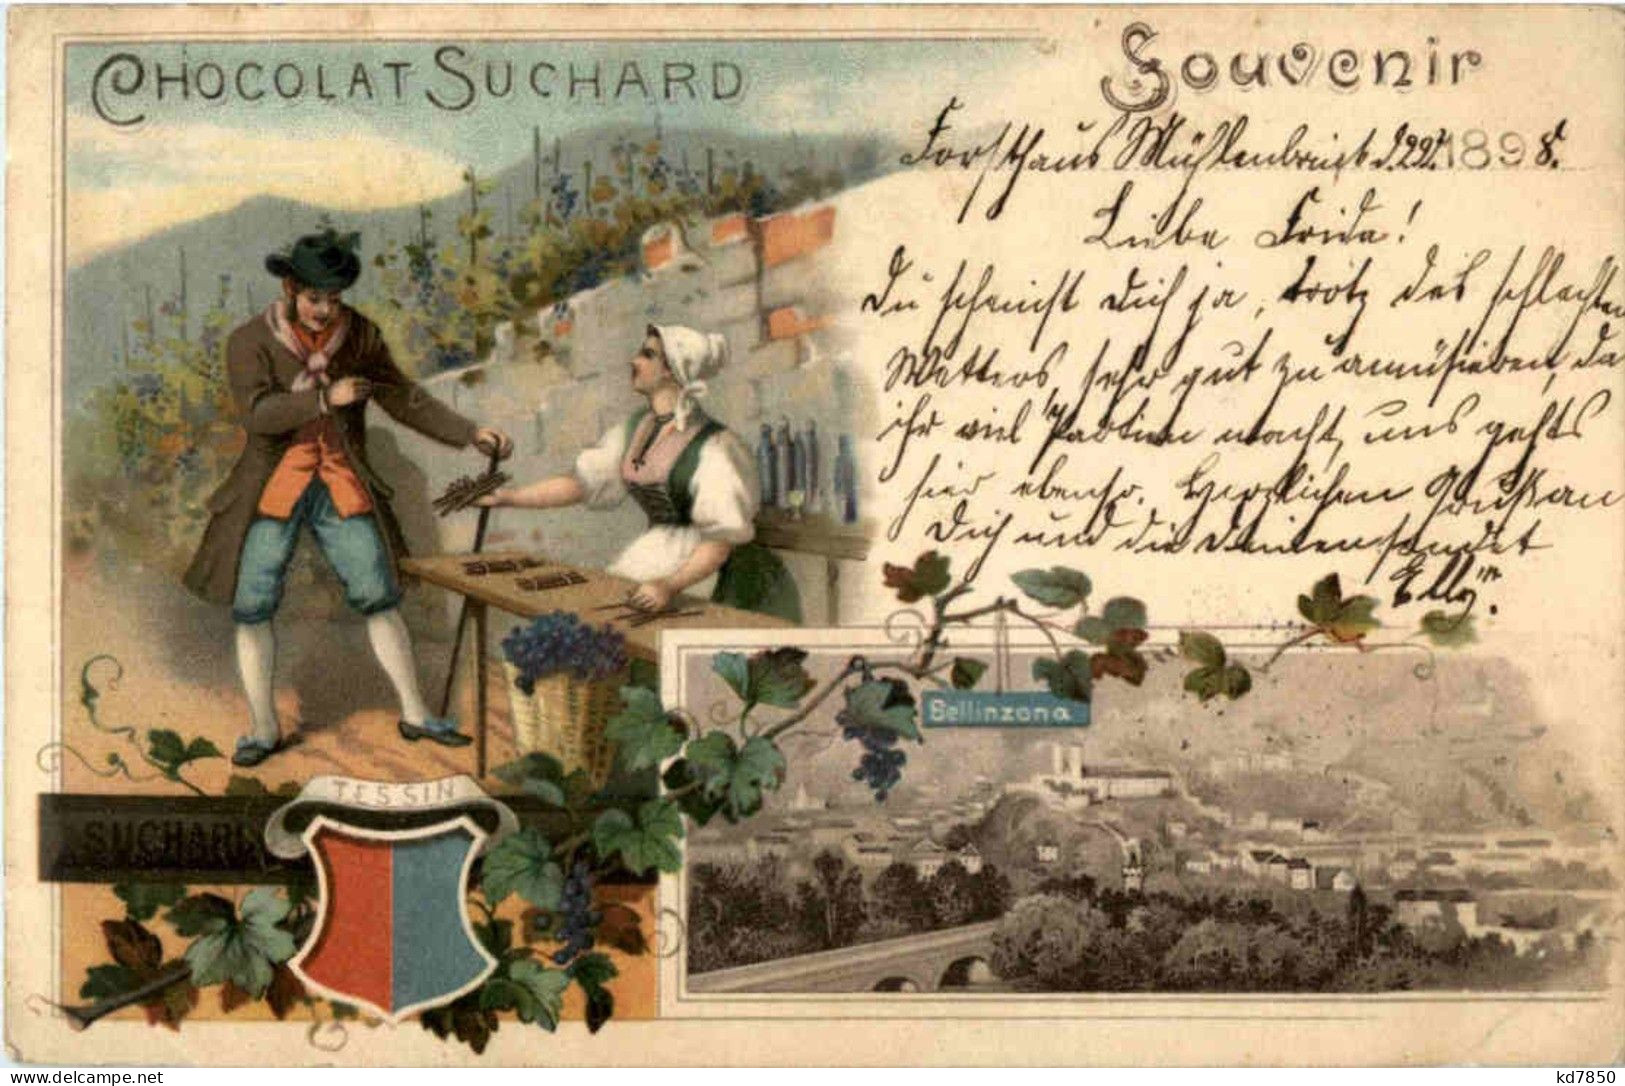 CHOCOLAT SUCHARD
Souvenir
Forsthaus d. 22. 1898.
Liebe Frida!
Du scheinst Dich ja, trotz des schlechten
Wetters, sehr gut zu amüsieren, da
ihr viel Partien macht, uns gehts
hier ebenso. Herzlichen Gruß an
Dich und die Deinen sendet
Elly.
Bellinzona
TESSIN
SUCHARD
kd7850